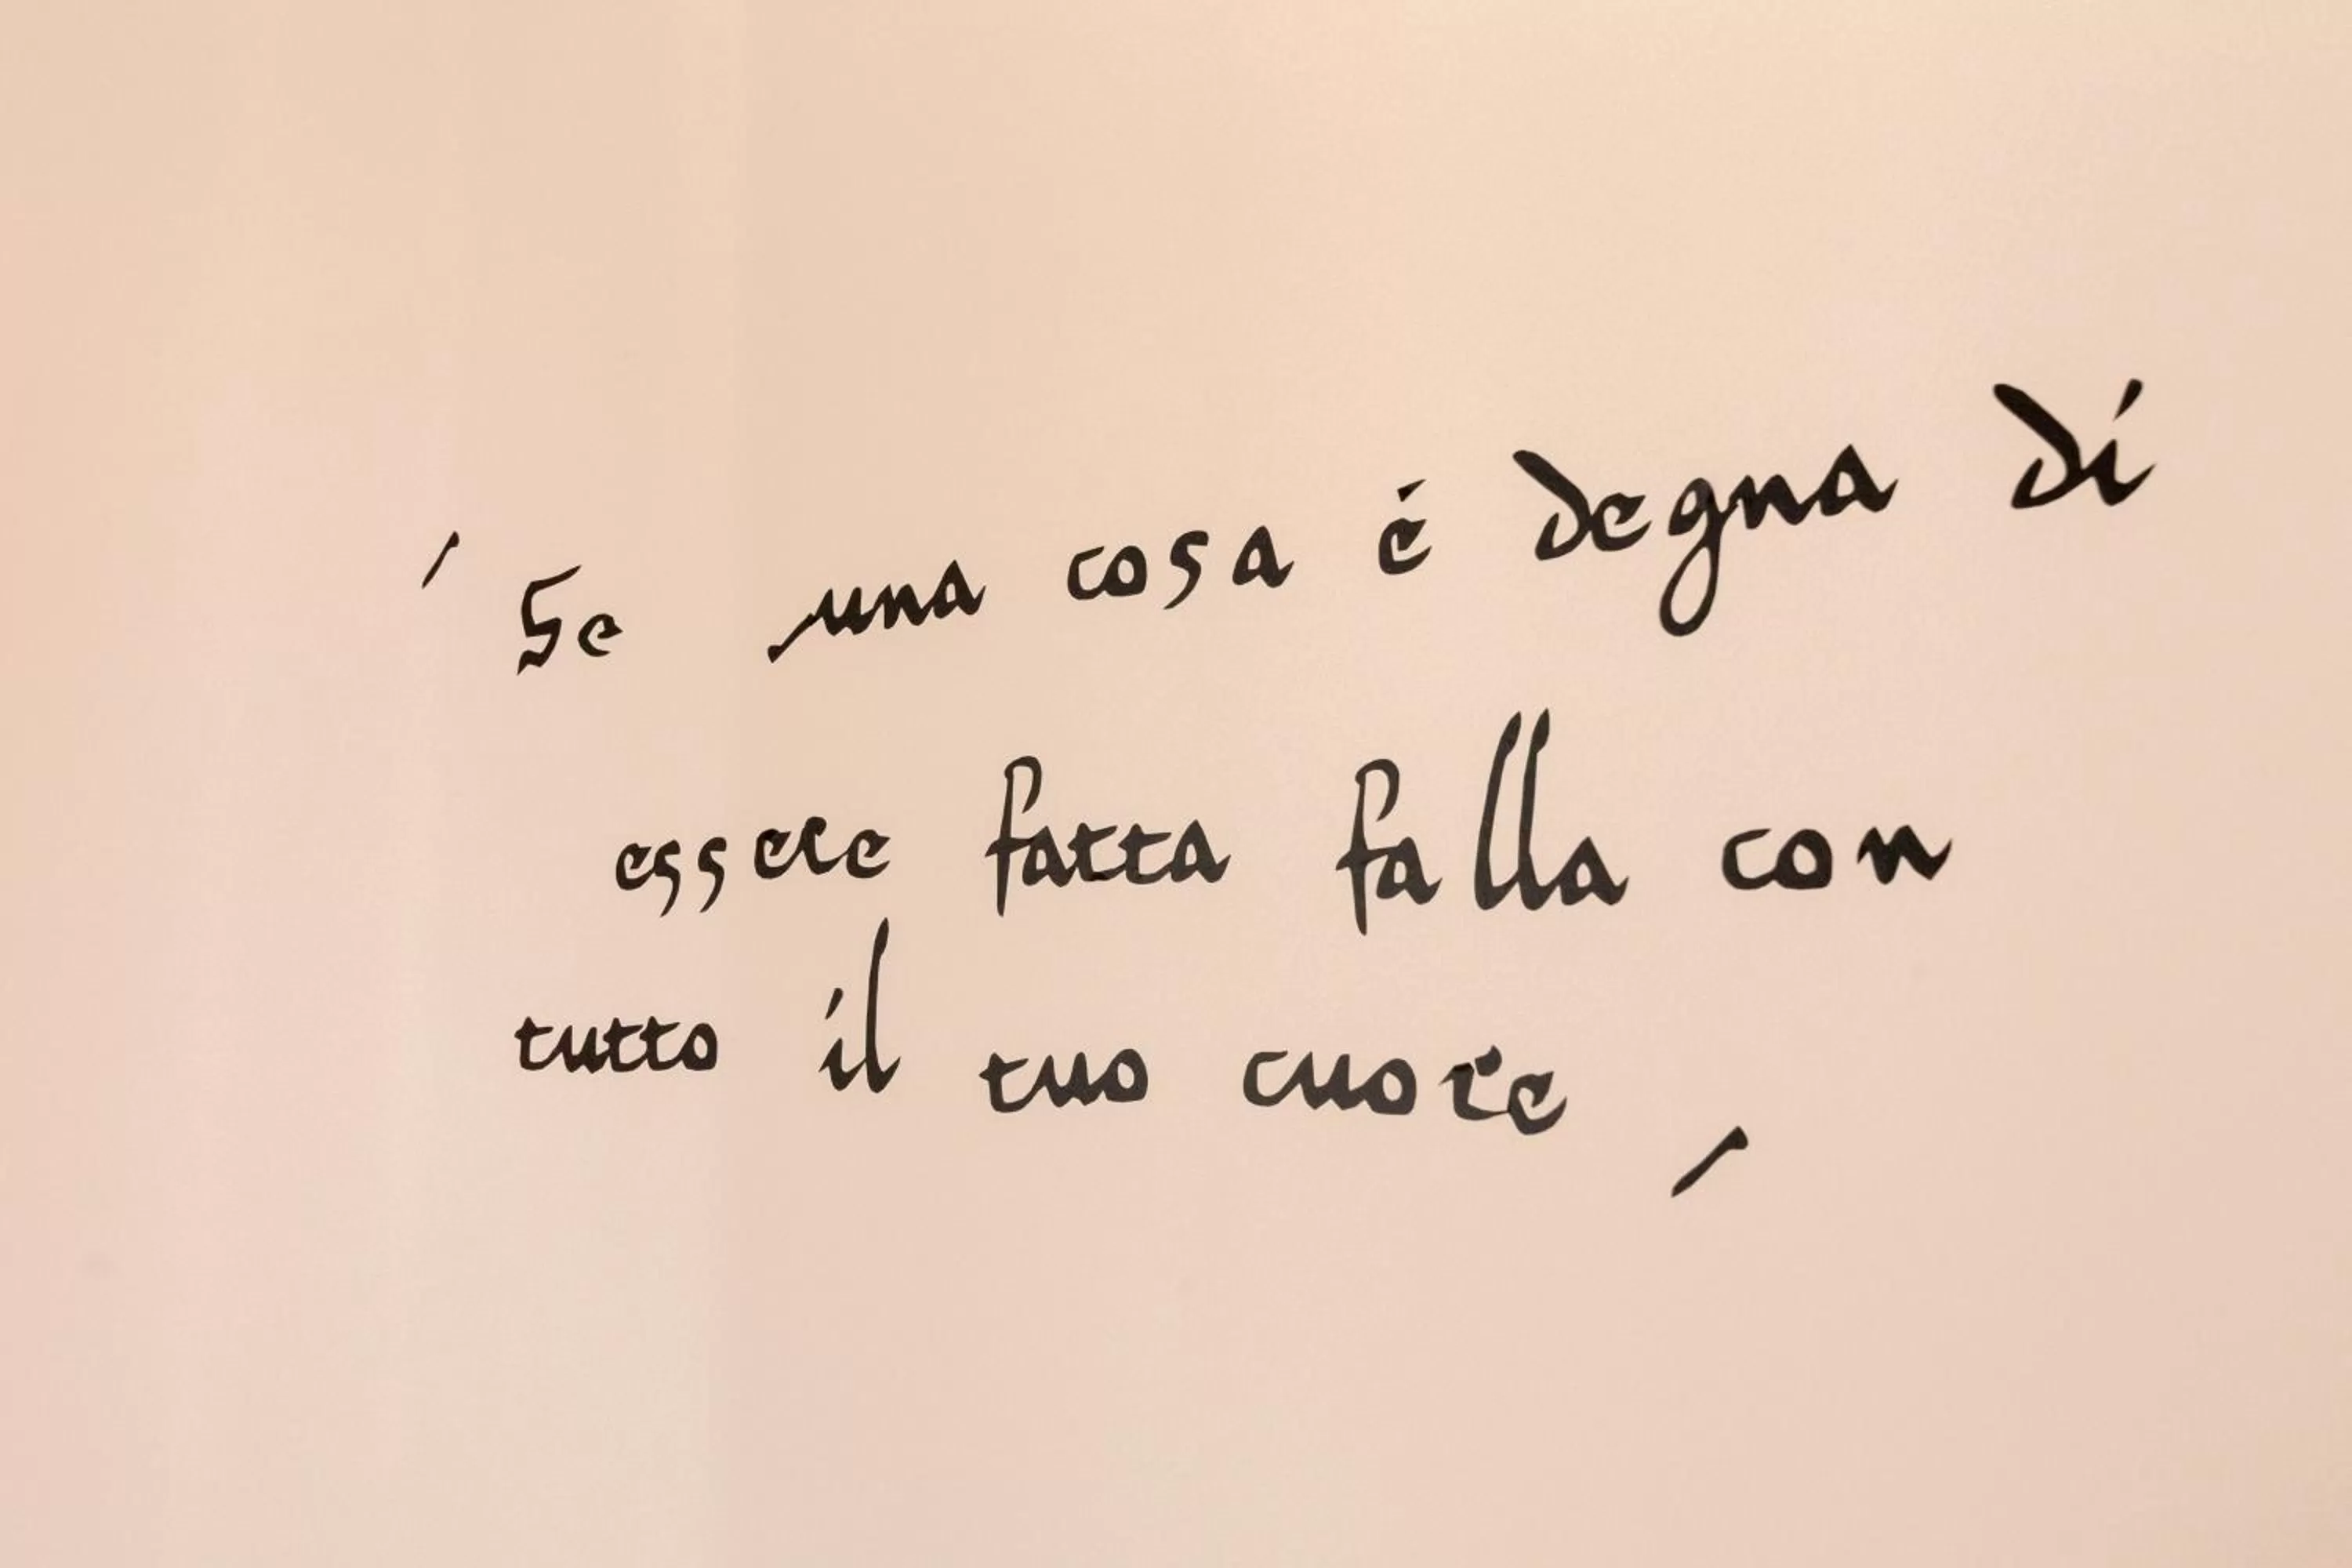 ' Se una cosa é degna di
essere fatta falla con
tutto il tuo cuore ,